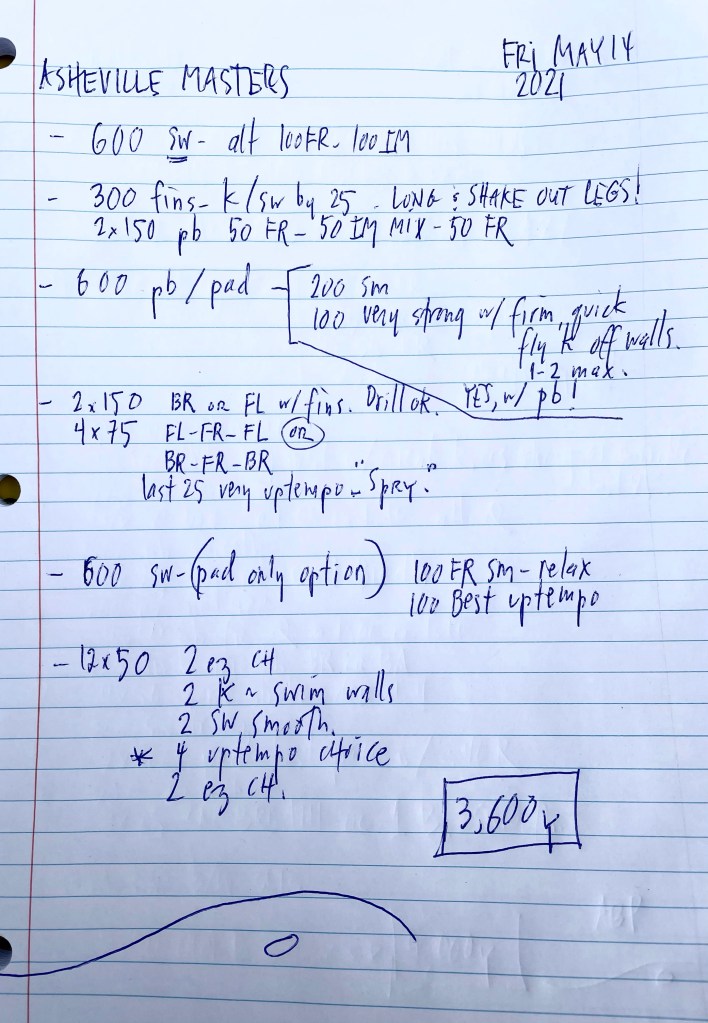 ASHEVILLE MASTERS
FRI MAY 14
2021
- 600 SW - alt 100 FR - 100 IM
- 300 fins - k/sw by 25 - LONG & SHAKE OUT LEGS!
2x150 pb 50 FR - 50 IM MIX - 50 FR
- 600 pb/pad - 200 sm
100 very strong w/ firm, quick
fly k off walls.
1-2 max.
YES, w/ pb!
- 2x150 BR OR FL w/ fins. Drill ok.
4x75 FL-FR-FL OR
BR-FR-BR
last 25 very uptempo - "SPRY."
- 600 sw - (pad only option) 100 FR sm - relax
100 Best uptempo
- 12x50 2 ez CH
2 K ~ swim walls
2 SW smooth.
* 4 uptempo choice
2 ez CH.
3,600 y